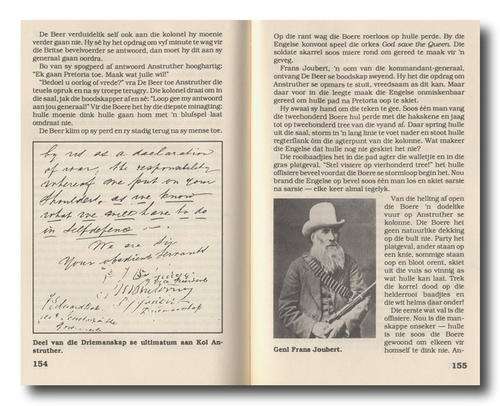 De Beer verduidelik self ook aan die kolonel hy moenie
verder gaan nie. Hy sê hy het opdrag om vyf minute te wag vir
die Britse bevelvoerder se antwoord, dan moet hy dit aan sy
generaal gaan oordra.
Bo van sy spogperd af antwoord Anstruther hooghartig:
"Ek gaan Pretoria toe. Maak wat julle wil!"
"Bedoel u oorlog of vrede?" vra De Beer toe Anstruther die
teuels opruk en na sy troepe terugry. Die kolonel draai om in
die saal, jak die boodskapper af en sê: "Loop gee my antwoord
aan jou generaal!" Vir die Boere het hy die diepste minagting;
hulle moenie dink hulle gaan hom met 'n blufspel laat
omdraai nie.
De Beer klim op sy perd en ry stadig terug na sy mense toe.
by us as a declaration
of war, the responsability
whereof we put on your
shoulders, as we know
what we
to do
in selfdefence
We are Sir
Your obedient Servants
Deel van die Driemanskap se ultimatum aan Kol An-
struther.
154
Op die rant wag die Boere roerloos op hulle perde. By die
Engelse konvooi speel die orkes God save the Queen. Die
soldate skarrel soos miere rond om gereed te maak vir 'n
geveg.
Frans Joubert, 'n oom van die kommandant-generaal,
ontvang De Beer se boodskap swyend. Hy het die opdrag om
Anstruther se opmars te stuit, vreedsaam as dit kan. Maar
daar voor in die leegte maak die Engelse onmiskenbaar
gereed om hulle pad na Pretoria oop te skiet.
Hy swaai sy hand om die teken te gee. Soos één man vang
die tweehonderd Boere hul perde met die hakskene en jaag
tot op tweehonderd tree van die vyand af. Daar spring hulle
uit die saal, storm in 'n lang linie te voet nader en stoot hulle
regterflank óm die agterpunt van die kolonne. Wat makeer
die Engelse dat hulle nog nie geskiet het nie?
Die rooibaadjies het in die pad agter die walletjie en in die
gras platgeval. "Stel visiere op vierhonderd tree!" het hulle
offisiere beveel voordat die Boere se stormloop begin het. Nou
brand die Engelse op bevel soos één man los en skiet sarsie
na sarsie — elke keer almal tegelyk.
Van die helling af open
die Boere 'n dodelike
vuur op Anstruther se
kolonne. Die Boere het
geen natuurlike dekking
op die bult nie. Party het
platgeval, ander staan op
een knie, sommige staan
oop en bloot orent, skiet
uit die vuis so vinnig as
wat hulle kan laat. Trek
die korrel dood op die
helderrooi baadjies en
die wit helms daar onder!
Die eerste wat val is die
offisiere. Nou is die man-
skappe onseker — hulle
is nie soos die Boere
gewoond om elkeen vir
homself te dink nie. An-
Genl Frans Joubert.
155